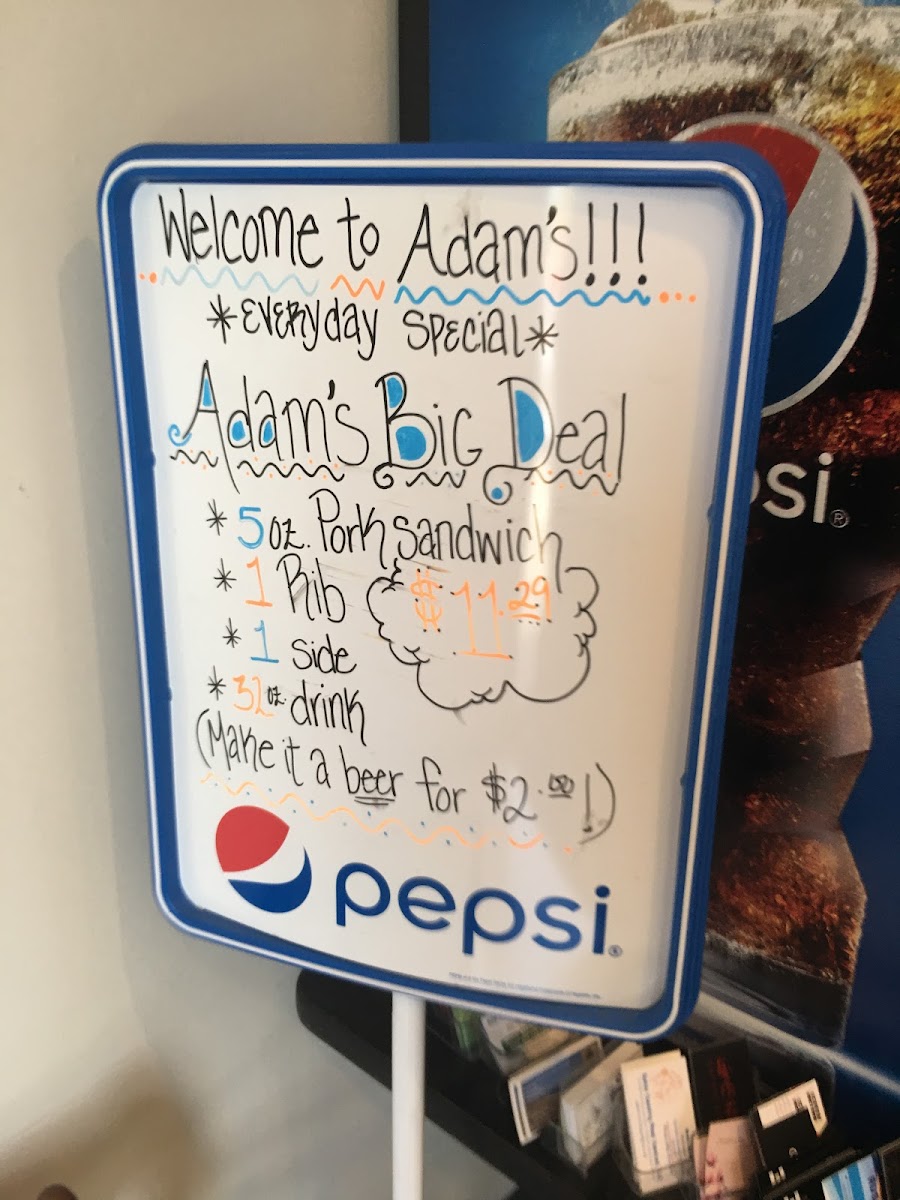 Welcome to Adam's!!!
*EVERyday SPEcial*
Adam's Big Deal
* 5 oz. Pork sandwich
* 1 Rib
$11.29
* 1 side
* 32 oz. drink
(Make it a beer for $2.00!)
pepsi
psi®